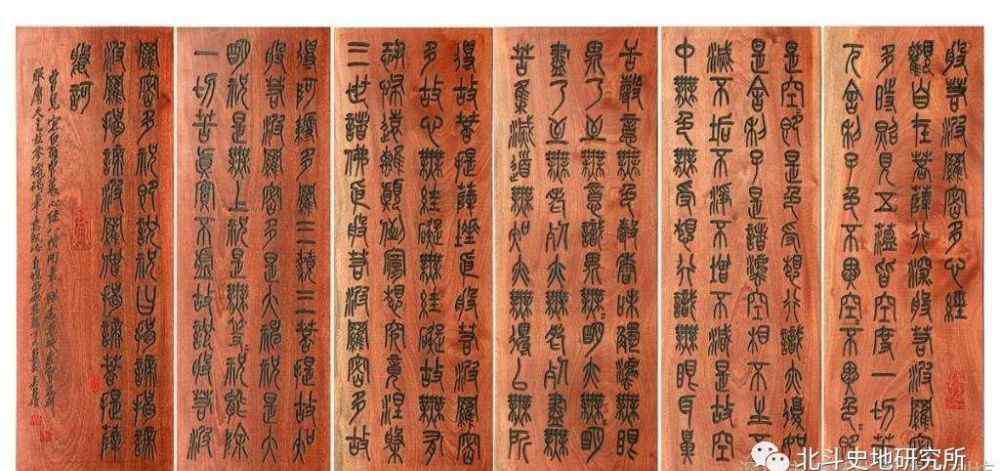 般若波羅密多心經
觀自在菩薩深般若波羅密
多時照見五蘊皆空度一切苦
厄舍利子色不異空不異色
是空即是色受想行識亦復如
是舍利子是諸法空相不生不
滅不垢不淨不增不減是故空
中無色無受想行識無眼耳鼻
舌身意無色聲香味觸法無眼
界乃至無意識界無明亦無明
盡乃至無老死亦無老死盡無
苦集滅道無知亦無得以無所
得故菩提薩埵依般若波羅密
多故心無罣礙無罣礙故無有
恐怖遠離顛倒夢想究竟涅槃
三世諸佛依般若波羅密多故
得阿耨多羅三藐三菩提故知
般若波羅密多是大神咒是大
明咒是無上咒是無等咒能除
一切苦真實不虛故說般若波
羅密多咒即說咒曰揭諦揭諦
波羅揭諦波羅僧揭諦菩提薩
婆訶
北斗史地研究所